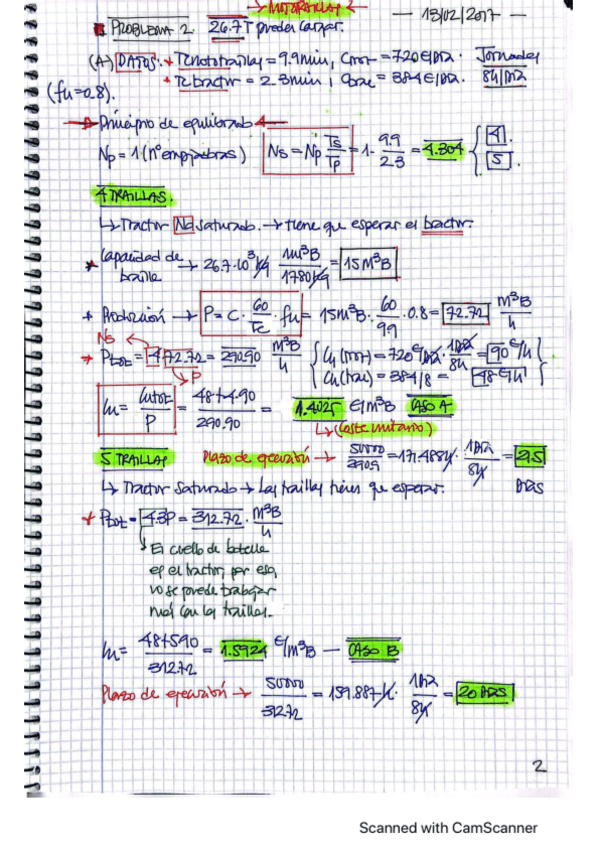 → MOTOTRAILLAS ← — 13/02/2017 —
PROBLEMA 2. 26.7T pueden cargar.
(A) DATOS: → Tc mototraillas = 9.9 min, Cmot = 720 €/DIA. Jornada
→ Tc tractor = 2.3 min, Ctrac = 384 €/DIA. 8h/DIA
(fu=0.8).
→ Principio de equilibrado ←
Np = 1 (nº empujadoras) Ns = Np Ts/Tp = 1 · 9.9/2.3 = 4.304 { 4 5 .
4 TRAILLAS.
↳ Tractor No saturado. → tiene que esperar el tractor.
* Capacidad de trailla → 26.7·10³ kg 1m³B/1780kg = 15 m³B
+ Producción → P = C · 60/Tc · fu = 15 m³B · 60/9.9 · 0.8 = 72.72 m³B/h
Ns P
→ Ptot = 4·72.72 = 290.90 m³B/h { Ch (mot) = 720 €/DIA · 1DIA/8h = 90 €/h
Ch (trac) = 384/8 = 48 €/h }
Cu = Chtot/P = 48+4·90/290.90 = 1.4025 €/m³B CASO A
↳ (Coste unitario)
5 TRAILLAS Plazo de ejecución → 50000/290.9 = 171.488h · 1DIA/8h = 25 DIAS
↳ Tractor Saturado → Las traillas tienen que esperar.
+ Ptot = 4.3P = 312.72 m³B/h
↳ El cuello de botella
es el tractor, por eso,
no se puede trabajar
más con las traillas.
Cu = 48+5·90/312.72 = 1.5924 €/m³B — CASO B
Plazo de ejecución → 50000/312.72 = 159.887h · 1DIA/8h = 20 DIAS
2
Scanned with CamScanner